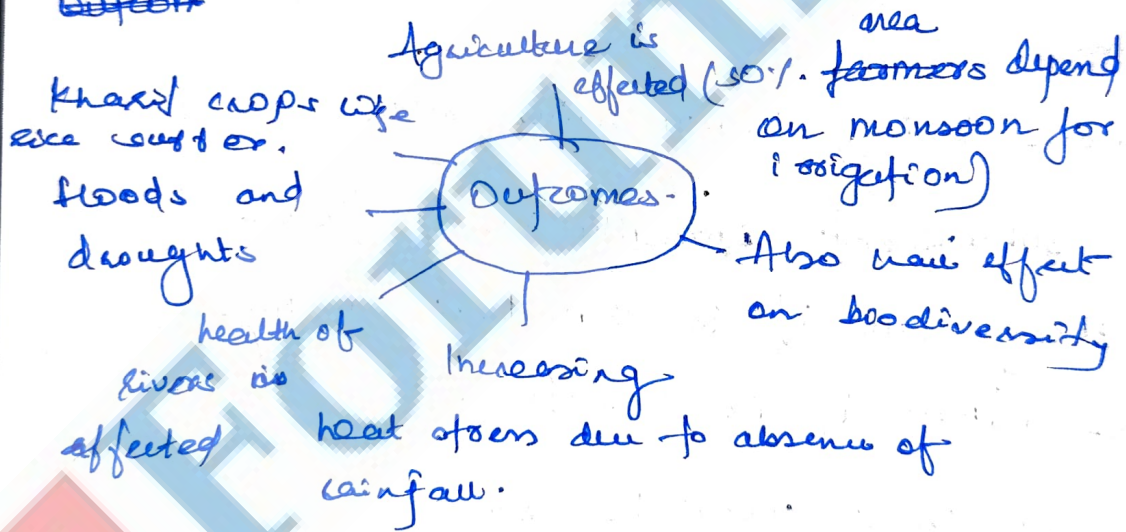 Outcom
Agriculture is
effected (50%. area farmers depend
on monsoon for
irrigation)
Kharif crops like
rice suffer.
floods and
droughts
Outcomes
Also have effect
on biodiversity
health of
rivers is
affected
Increasing
heat stress due to absence of
rainfall.
Forum